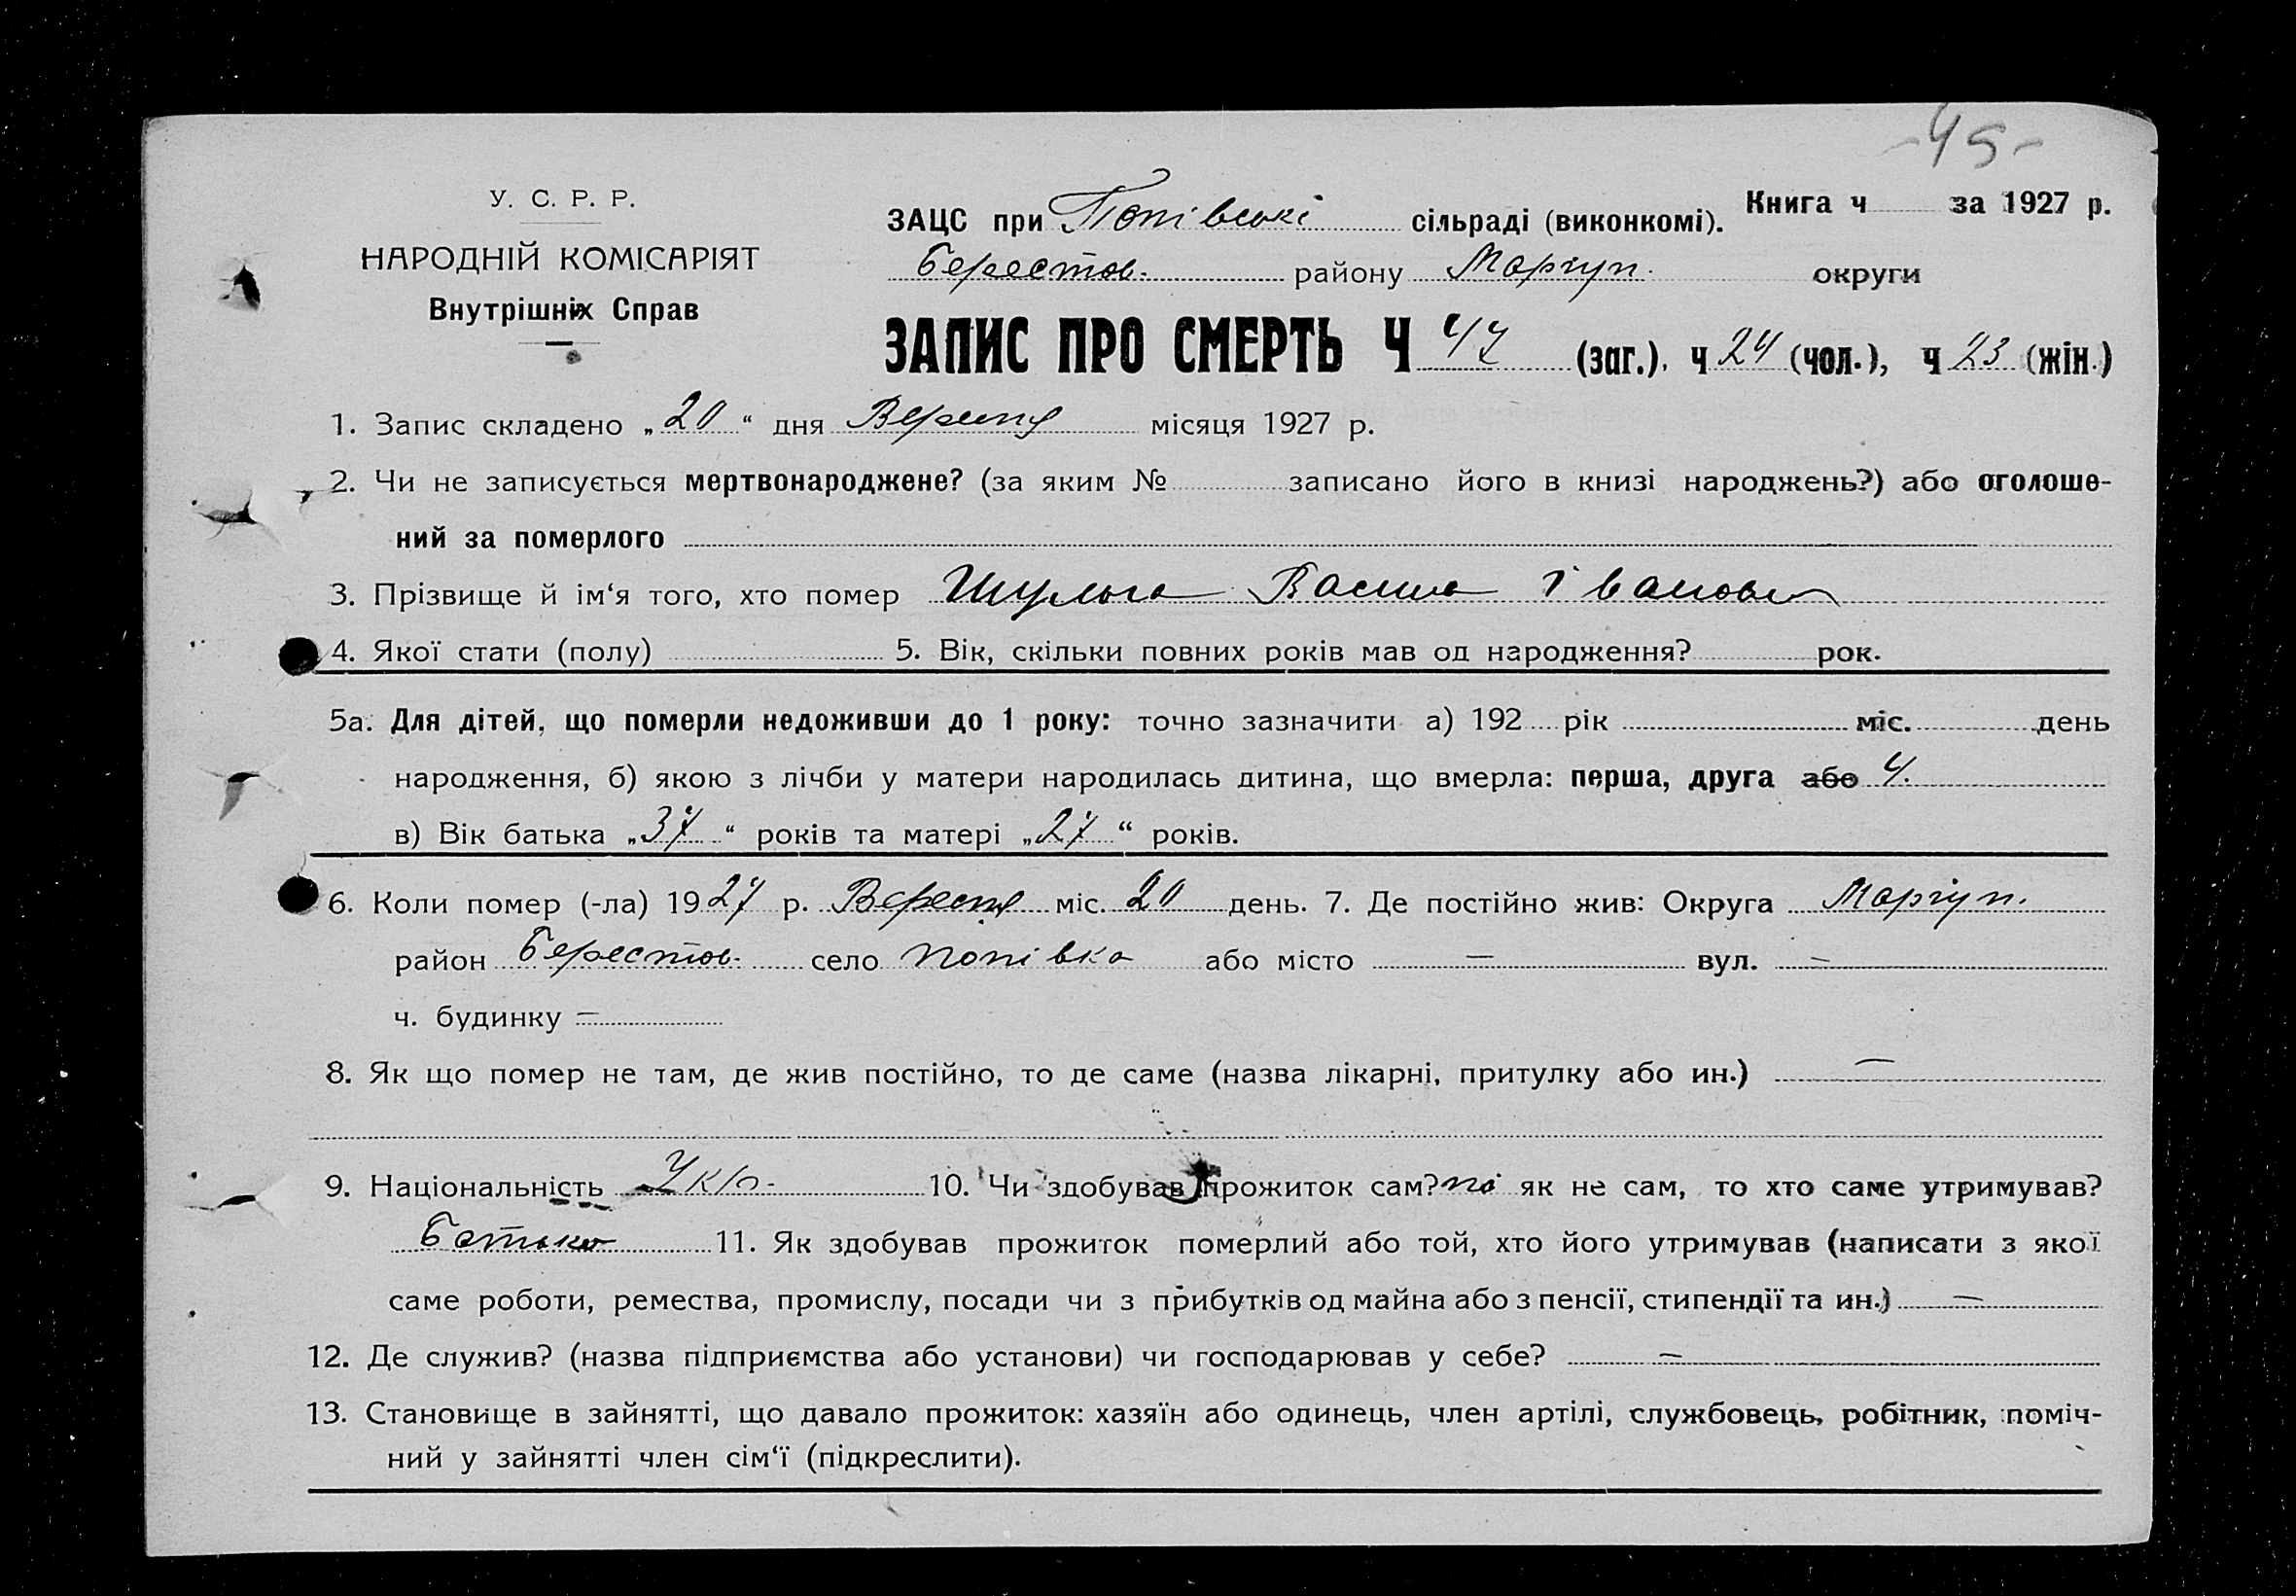 -45-
У. С. Р. Р.
НАРОДНІЙ КОМІСАРІЯТ
Внутрішніх Справ
ЗАЦС при Попівські сільраді (виконкомі). Книга ч за 1927 р.
Берестов. району Маріуп. округи
ЗАПИС ПРО СМЕРТЬ Ч 47 (заг.), ч 24 (чол.), ч 23 (жін.)
1. Запис складено „20“ дня Вересня місяця 1927 р.
2. Чи не записується мертвонароджене? (за яким № записано його в книзі народжень?) або оголоше-
ний за померлого
3. Прізвище й ім‘я того, хто помер Шульга Іванович
4. Якої стати (полу) 5. Вік, скільки повних років мав од народження? рок.
5а. Для дітей, що померли недоживши до 1 року: точно зазначити а) 192 рік міс. день
народження, б) якою з лічби у матери народилась дитина, що вмерла: перша, друга або 4.
в) Вік батька „37“ років та матері „27“ років.
6. Коли помер (-ла) 1927 р. Вересня міс. 20 день. 7. Де постійно жив: Округа Маріуп.
район Берестов. село Попівка або місто — вул. —
ч. будинку —
8. Як що помер не там, де жив постійно, то де саме (назва лікарні, притулку або ин.) —
9. Національність Укр. 10. Чи здобував прожиток сам? ні як не сам, то хто саме утримував?
Батько 11. Як здобував прожиток померлий або той, хто його утримував (написати з якої
саме роботи, ремества, промислу, посади чи з прибутків од майна або з пенсії, стипендії та ин.) —
12. Де служив? (назва підприємства або установи) чи господарював у себе? —
13. Становище в зайнятті, що давало прожиток: хазяїн або одинець, член артілі, службовець, робітник, поміч-
ний у зайнятті член сім‘ї (підкреслити).